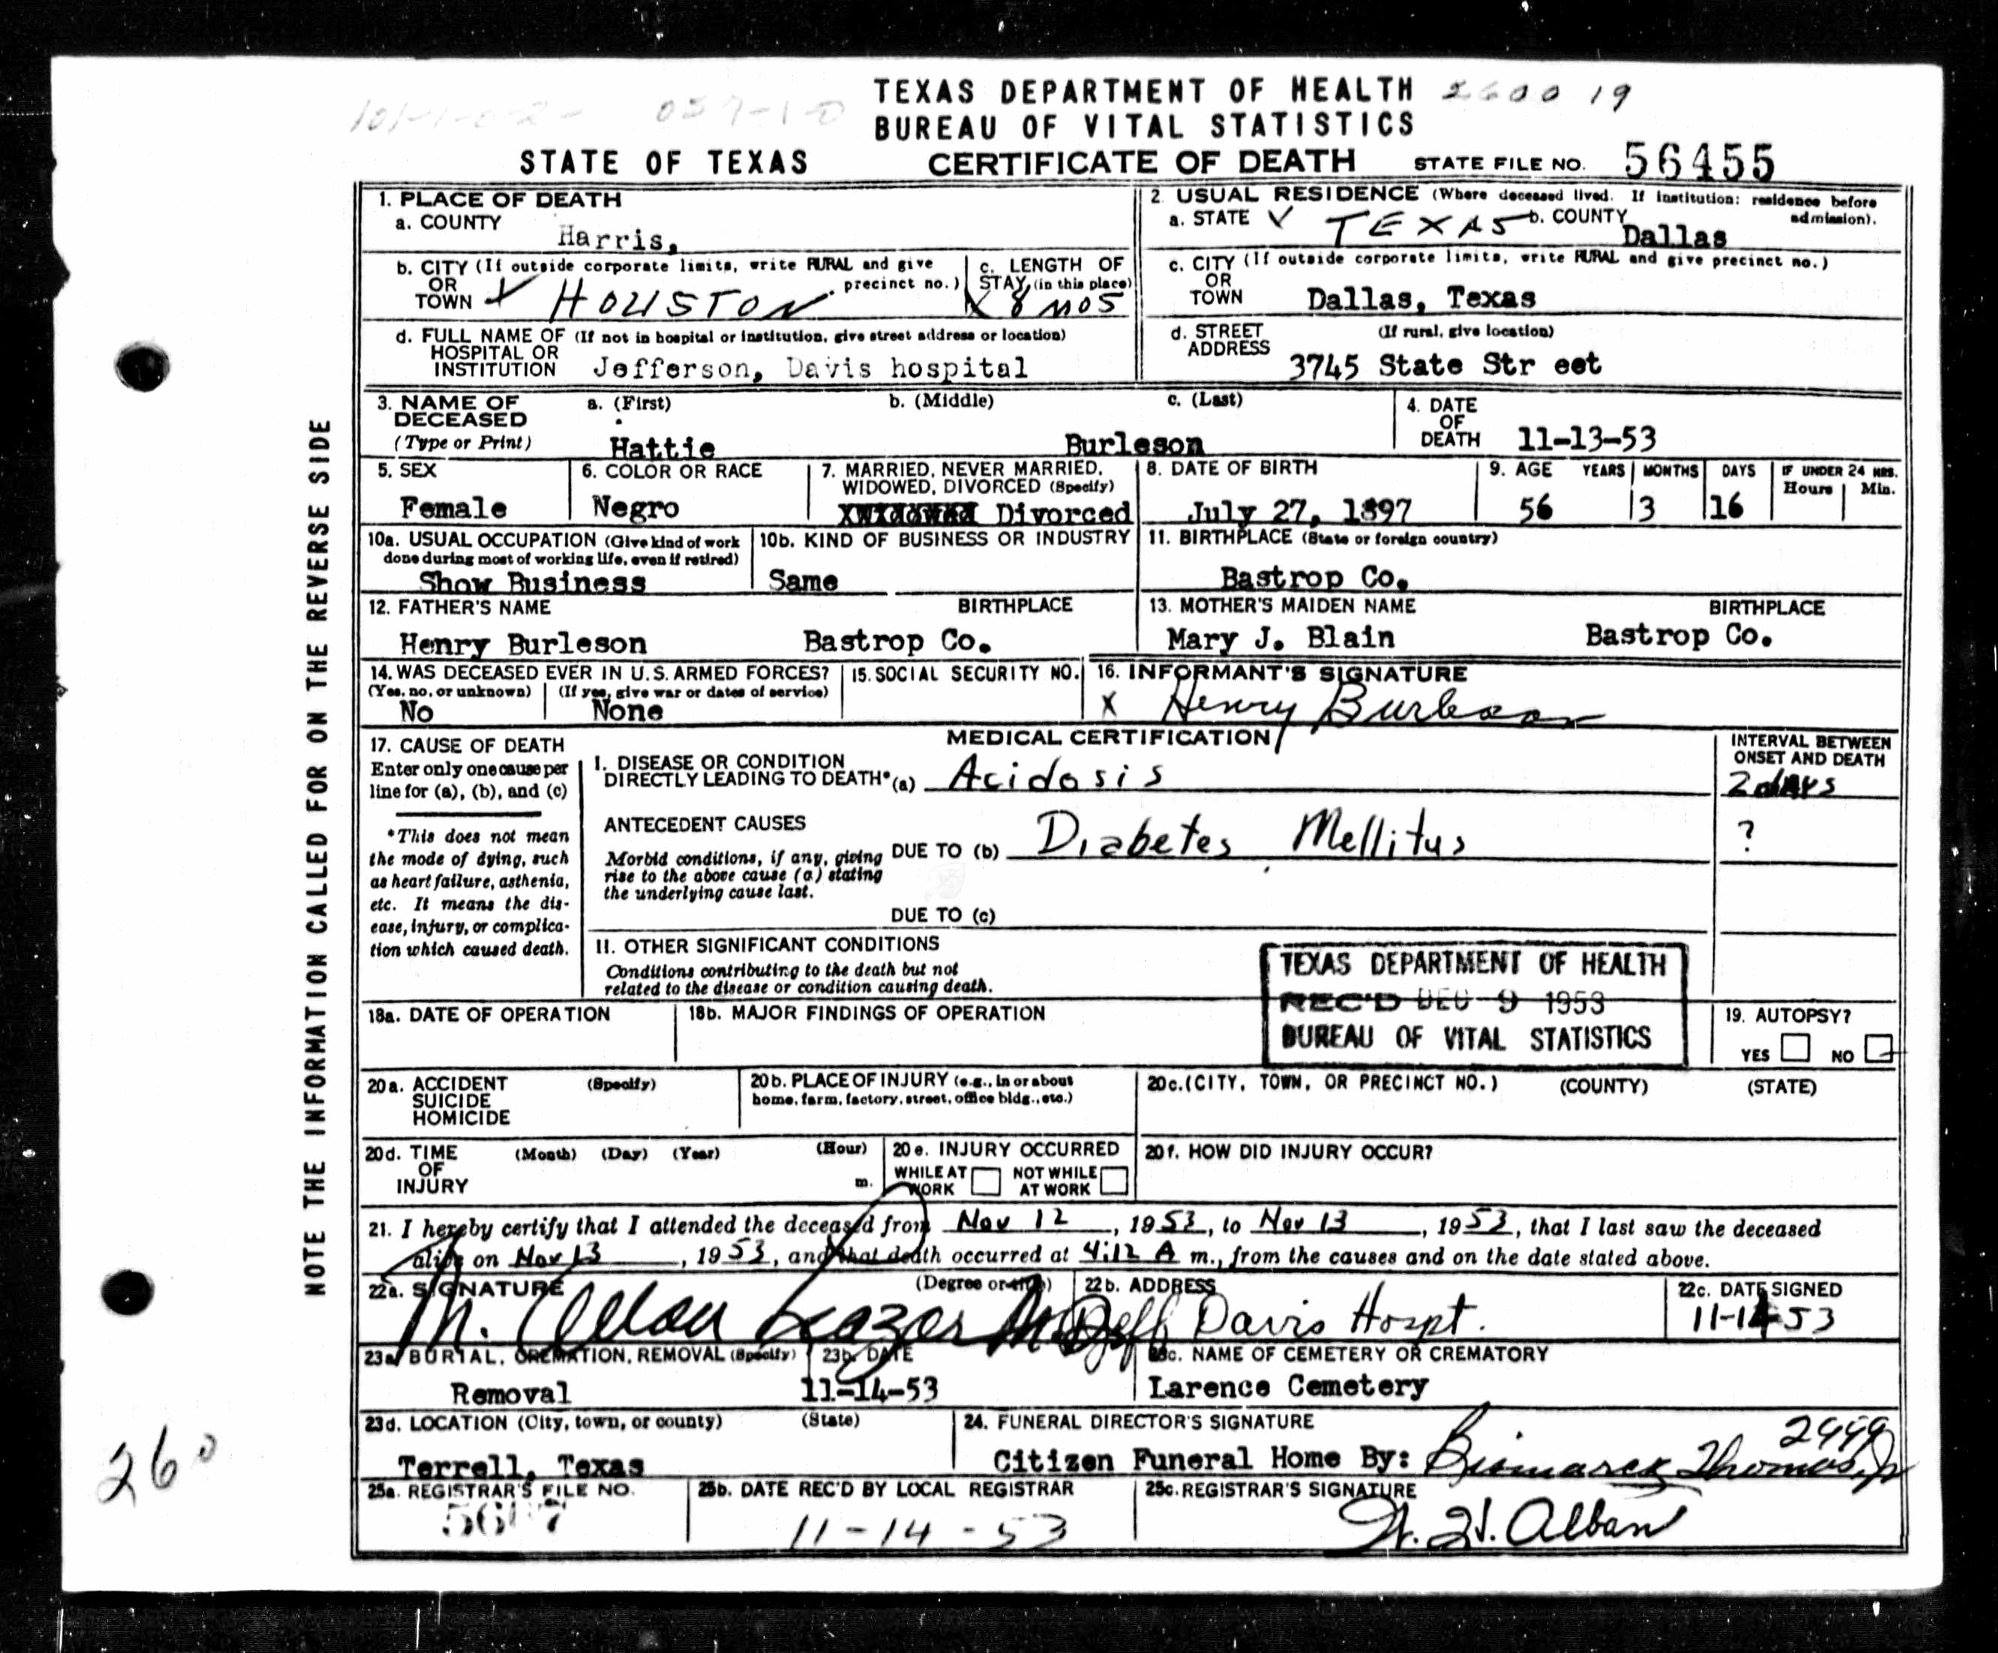 TEXAS DEPARTMENT OF HEALTH
BUREAU OF VITAL STATISTICS
STATE OF TEXAS CERTIFICATE OF DEATH STATE FILE NO. 56455
NOTE THE INFORMATION CALLED FOR ON THE REVERSE SIDE
1. PLACE OF DEATH
a. COUNTY Harris,
2. USUAL RESIDENCE (Where deceased lived. If institution: residence before admission).
a. STATE TEXAS b. COUNTY Dallas
b. CITY (If outside corporate limits, write RURAL and give precinct no.)
OR TOWN X HOUSTON
c. LENGTH OF STAY (in this place)
X 8 mos
c. CITY (If outside corporate limits, write RURAL and give precinct no.)
OR TOWN Dallas, Texas
d. FULL NAME OF (If not in hospital or institution, give street address or location)
HOSPITAL OR INSTITUTION Jefferson, Davis hospital
d. STREET ADDRESS (If rural, give location)
3745 State Str eet
3. NAME OF DECEASED (Type or Print)
a. (First) b. (Middle) c. (Last)
Hattie Burleson
4. DATE OF DEATH 11-13-53
5. SEX
Female
6. COLOR OR RACE
Negro
7. MARRIED, NEVER MARRIED, WIDOWED, DIVORCED (Specify)
Divorced
8. DATE OF BIRTH
July 27, 1897
9. AGE YEARS MONTHS DAYS IF UNDER 24 HRS. Hours Min.
56 3 16
10a. USUAL OCCUPATION (Give kind of work done during most of working life, even if retired)
Show Business
10b. KIND OF BUSINESS OR INDUSTRY
Same
11. BIRTHPLACE (State or foreign country)
Bastrop Co.
12. FATHER'S NAME BIRTHPLACE
Henry Burleson Bastrop Co.
13. MOTHER'S MAIDEN NAME BIRTHPLACE
Mary J. Blain Bastrop Co.
14. WAS DECEASED EVER IN U.S. ARMED FORCES?
(Yes, no, or unknown) (If yes, give war or dates of service)
No None
15. SOCIAL SECURITY NO.
16. INFORMANT'S SIGNATURE
X Henry Burleson
MEDICAL CERTIFICATION
17. CAUSE OF DEATH
Enter only one cause per line for (a), (b), and (c)
*This does not mean the mode of dying, such as heart failure, asthenia, etc. It means the disease, injury, or complication which caused death.
I. DISEASE OR CONDITION
DIRECTLY LEADING TO DEATH* (a) Acidosis
INTERVAL BETWEEN ONSET AND DEATH
2 days
ANTECEDENT CAUSES
Morbid conditions, if any, giving rise to the above cause (a) stating the underlying cause last.
DUE TO (b) Diabetes Mellitus
?
DUE TO (c)
II. OTHER SIGNIFICANT CONDITIONS
Conditions contributing to the death but not related to the disease or condition causing death.
TEXAS DEPARTMENT OF HEALTH
REC'D DEC 9 1953
BUREAU OF VITAL STATISTICS
18a. DATE OF OPERATION
18b. MAJOR FINDINGS OF OPERATION
19. AUTOPSY?
YES NO
20a. ACCIDENT SUICIDE HOMICIDE (Specify)
20b. PLACE OF INJURY (e.g., in or about home, farm, factory, street, office bldg., etc.)
20c. (CITY, TOWN, OR PRECINCT NO.) (COUNTY) (STATE)
20d. TIME OF INJURY (Month) (Day) (Year) (Hour) m.
20e. INJURY OCCURRED
WHILE AT WORK NOT WHILE AT WORK
20f. HOW DID INJURY OCCUR?
21. I hereby certify that I attended the deceased from Nov 12, 1953, to Nov 13, 1953, that I last saw the deceased
alive on Nov 13, 1953, and that death occurred at 4:12 A m., from the causes and on the date stated above.
22a. SIGNATURE (Degree or title)
M. Allan Lazar M.D.
22b. ADDRESS
Jeff Davis Hospt.
22c. DATE SIGNED
11-14-53
23a. BURIAL, CREMATION, REMOVAL (Specify)
Removal
23b. DATE
11-14-53
23c. NAME OF CEMETERY OR CREMATORY
Larence Cemetery
23d. LOCATION (City, town, or county) (State)
Terrell, Texas
24. FUNERAL DIRECTOR'S SIGNATURE 2999
Citizen Funeral Home By: Bismarck Thomas, Jr
25a. REGISTRAR'S FILE NO.
25b. DATE REC'D BY LOCAL REGISTRAR
11-14-53
25c. REGISTRAR'S SIGNATURE
W. H. Alban
260